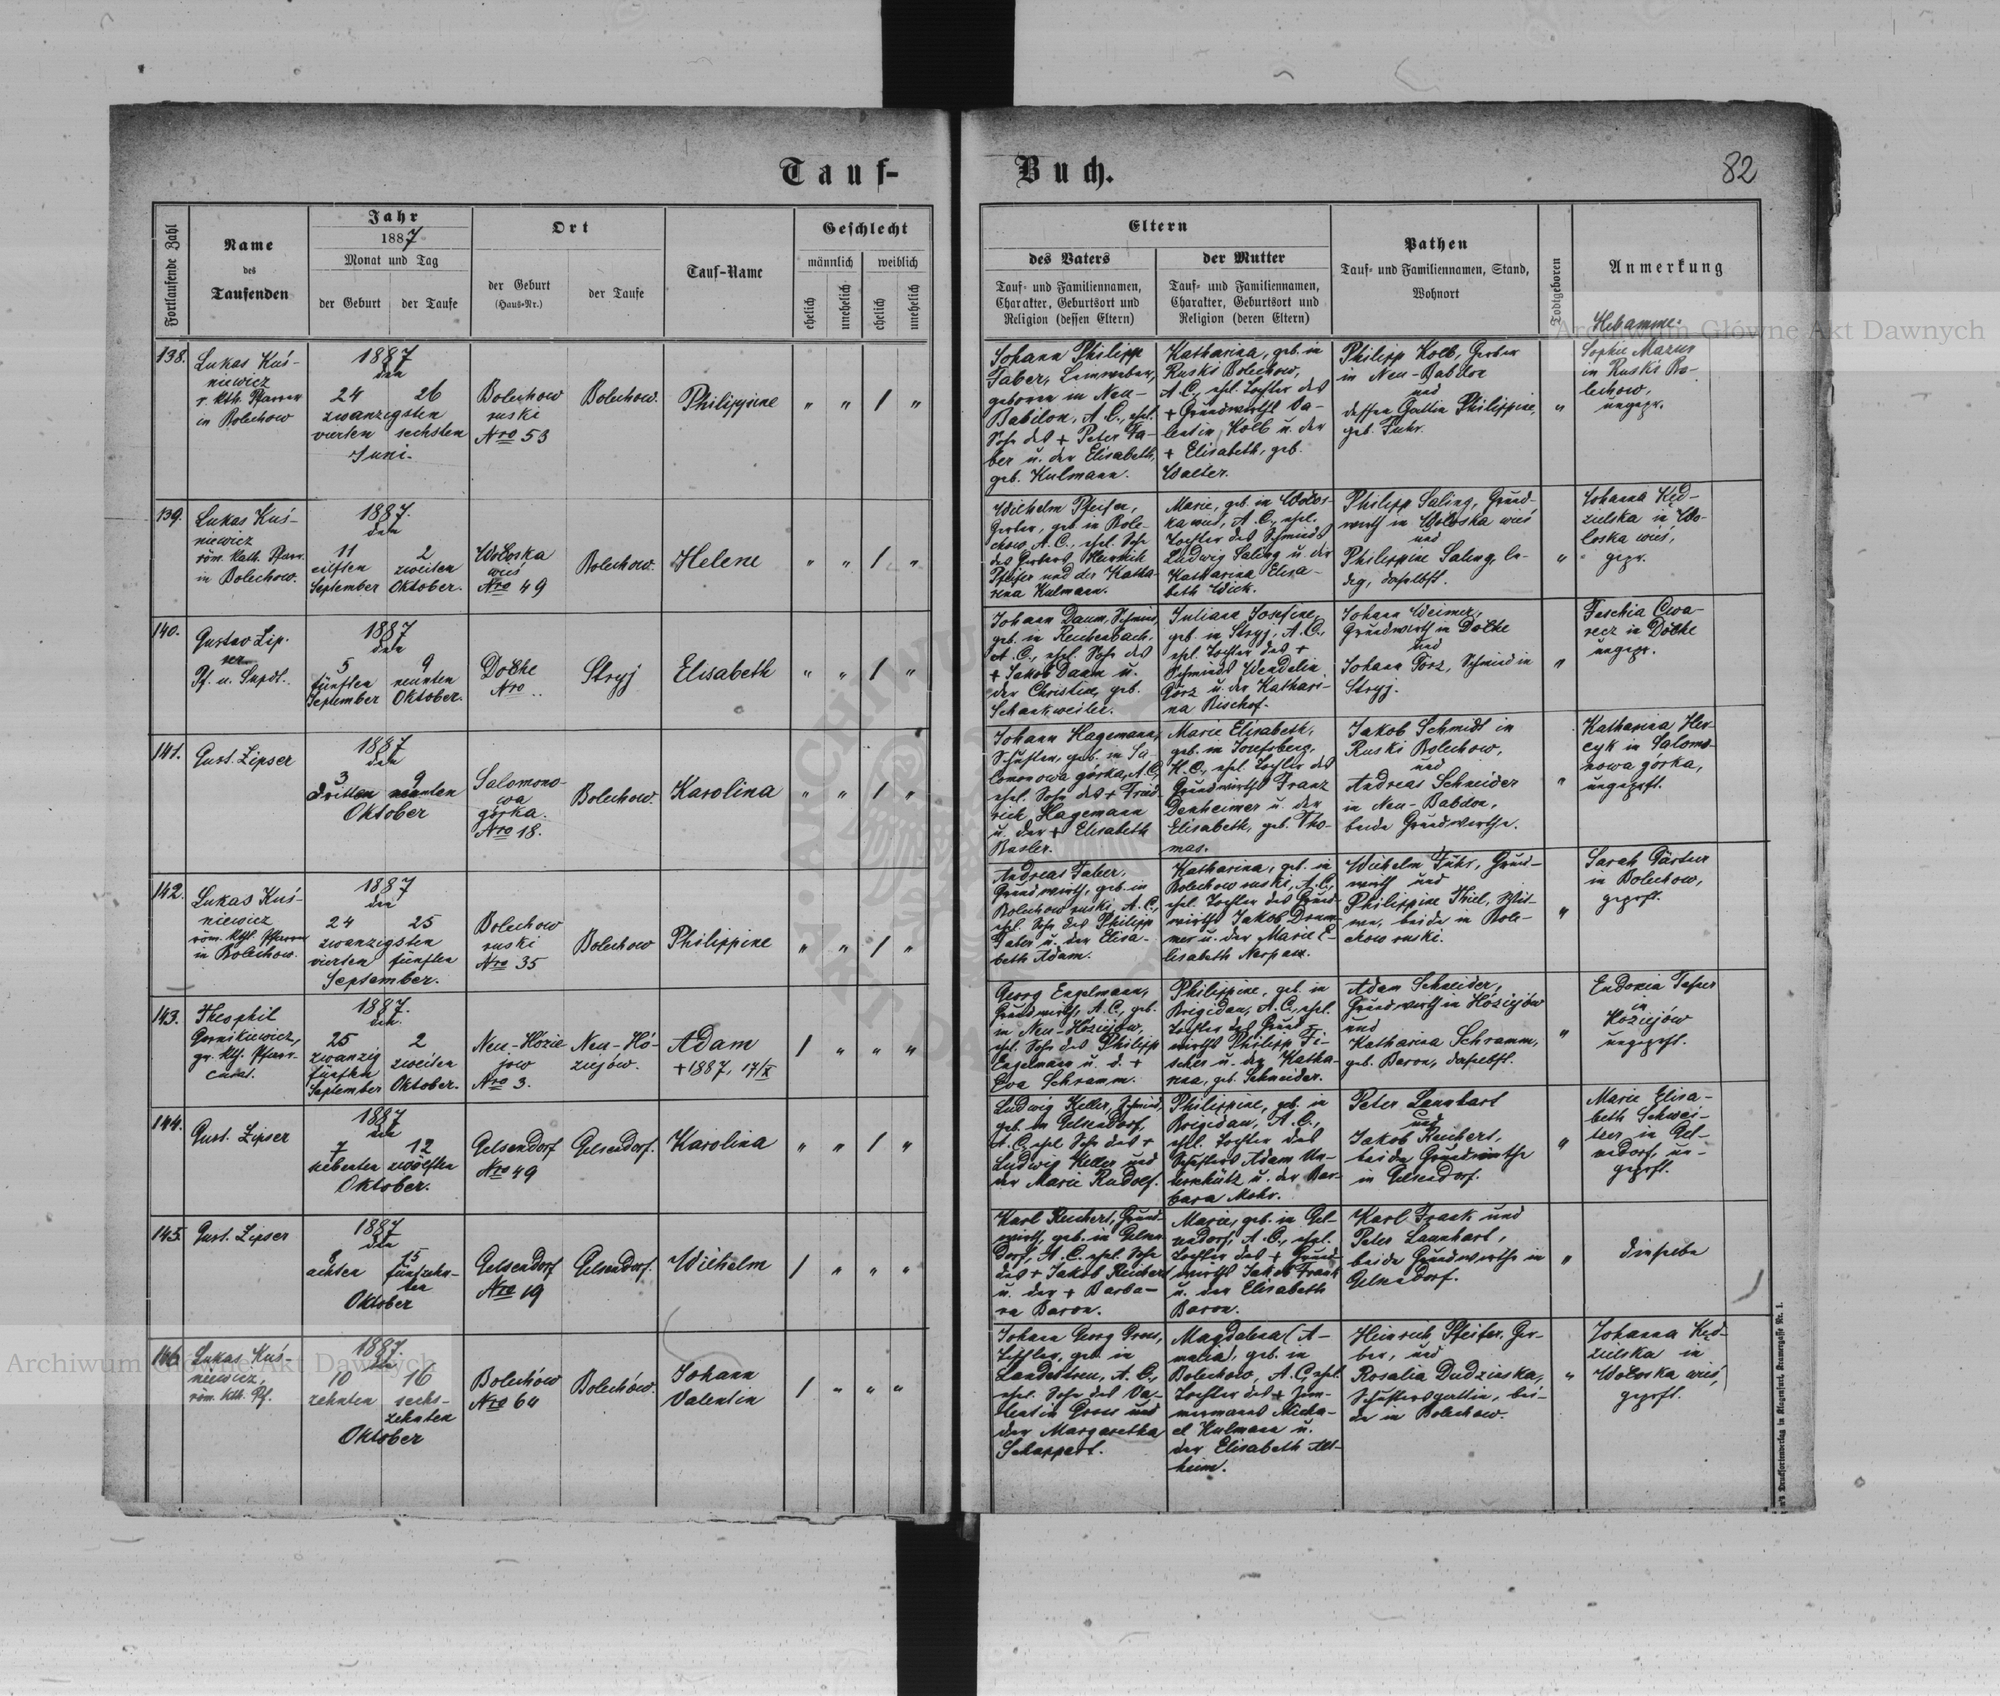 Tauf-
Buch.
82
Fortlaufende Zahl
Name
des
Taufenden
Jahr
1887
Monat und Tag
der Geburt
der Taufe
Ort
der Geburt
(Haus-Nr.)
der Taufe
Tauf-Name
Geschlecht
männlich
weiblich
ehelich
unehelich
ehelich
unehelich
Eltern
des Vaters
Tauf- und Familiennamen,
Charakter, Geburtsort und
Religion (dessen Eltern)
der Mutter
Tauf- und Familiennamen,
Charakter, Geburtsort und
Religion (deren Eltern)
Pathen
Tauf- und Familiennamen, Stand,
Wohnort
Todtgeboren
Anmerkung
Hebamme:
138.
Lukas Kuś-
niewicz
r. kth. Pfarrer
in Bolechow
1887
den
24 26
zwanzigsten
vierten sechsten
Juni.
Bolechow
ruski
Nro 53
Bolechow.
Philippine
" " / "
Johann Philipp
Faber, Leinweber,
geboren in Neu-
Babilon, A.C., ehel.
Sohn des + Peter Fa-
ber u. der Elisabeth,
geb. Kulmann.
Katharina, geb. in
Ruski Bolechow,
A.C., ehel. Tochter des
+ Grundwirths Va-
lentin Kolb u. der
+ Elisabeth, geb.
Walter.
Philipp Kolb, Gerber
in Neu-Babilon
und
dessen Gattin Philippine,
geb. Fuhr.
"
Sophie Mazur
in Ruski Bo-
lechow,
ungepr.
139.
Lukas Kuś-
niewicz
röm. kath. Pfarr.
in Bolechow.
1887.
den
11 2
eilften zweiten
September Oktober.
Wołoska
wieś
Nro 49
Bolechow.
Helene
" " / "
Wilhelm Pfeifer,
Gerber, geb. in Bole-
chow, A.C., ehel. Sohn
des Gerbers Heinrich
Pfeifer und der Katha-
rina Kulmann.
Marie, geb. in Wołos-
ka wieś, A.C., ehel.
Tochter des Schmieds
Ludwig Saling u. der
Katharina Elisa-
beth Wick.
Philipp Saling, Grund-
wirth in Wołoska wieś
und
Philippine Saling, le-
dig, daselbst.
"
Johanna Kęd-
zielska in Wo-
łoska wieś,
gepr.
140.
Gustav Lip-
ser
Pf. u. Supdt.
1887
den
5 9
fünften neunten
September Oktober.
Dołhe
Nro ..
Stryj
Elisabeth
" " / "
Johann Daum, Schmied,
geb. in Reichenbach,
A.C., ehel. Sohn des
+ Jakob Daum u.
der Christine, geb.
Schankweiler.
Juliana Josefine,
geb. in Stryj, A.C.,
ehel. Tochter des +
Schmieds Wendelin
Görz u. der Kathari-
na Bischof.
Johann Weimer,
Grundwirth in Dołhe
und
Johann Görz, Schmied in
Stryj.
"
in Dołhe
ungepr.
141.
Gust. Lipser
1887
den
3 9
dritten neunten
Oktober
Salomono-
wa
górka.
Nro 18.
Bolechow.
Karolina
" " / "
Johann Hagemann,
Schuster, geb. in Sa-
lomonowa górka, A.C.,
ehel. Sohn des + Fried-
rich Hagemann
u. der + Elisabeth
Basler.
Marie Elisabeth,
geb. in Josefsberg,
H.C., ehel. Tochter des
Grundwirths Franz
Denheimer u. der
Elisabeth, geb. Tho-
mas.
Jakob Schmidt in
Ruski Bolechow,
und
Andreas Schneider
in Neu-Babilon,
beide Grundwirthe.
"
Katharina Her-
cyk in Salomo-
nowa górka,
ungeprft.
142.
Lukas Kuś-
niewicz
röm. kth. Pfarrer
in Bolechow.
1887
den
24 25
zwanzigsten
vierten fünften
September.
Bolechow
ruski
Nro 35
Bolechow
Philippine
" " / "
Andreas Faber,
Grundwirth, geb. in
Bolechow ruski, A.C.,
ehel. Sohn des Philipp
Faber u. der Elisa-
beth Adam.
Katharina, geb. in
Bolechow ruski, A.C.,
ehel. Tochter des Grund-
wirths Jakob Drum-
mer u. der Marie E-
lisabeth
Wilhelm Fuhr, Grund-
wirth und
Philippine Thiel, Wit-
we, beide in Bole-
chow ruski.
"
Sarah Gärtner
in Bolechow,
geprft.
143.
Theophil
Gornikiewicz,
gr. kth. Pfarr-
1887.
den
25 2
zwanzig zweiten
fünften
September Oktober.
Neu-Hozie-
jow
Nro 3.
Neu-Ho-
ziejów.
Adam
+ 1887, 17/X
/ " " "
Georg Engelmann,
Grundwirth, A.C., geb.
in Neu-Hoziejów,
ehel. Sohn des Philipp
Engelmann u. d. +
Eva Schramm.
Philippine, geb. in
Brigidau, A.C., ehel.
Tochter des Grund-
wirths Philipp Fi-
scher u. der Katha-
rina, geb. Schneider.
Adam Schneider,
Grundwirth in Hoziejów
und
Katharina Schramm,
geb. Baron, daselbst.
"
in
Hoziejów
ungeprft.
144.
Gust. Lipser
1887
den
7 12
siebenten zwölften
Oktober.
Gelsendorf
Nro 49
Gelsendorf.
Karolina
" " / "
Ludwig Keller, Schmied,
geb. in Gelsendorf,
A.C., ehel. Sohn des +
Ludwig Keller und
der Marie Rudolf.
Philippine, geb. in
Brigidau, A.C.,
ehel. Tochter des
Schusters Adam Un-
terschütz u. der Bar-
bara Mohr.
Peter Launhart
und
Jakob Reichert,
beide Grundwirthe
in Gelsendorf.
"
Marie Elisa-
beth Schwei-
tzer in Gel-
sendorf, un-
geprft.
145.
Gust. Lipser
1887
den
8 15
achten fünfzehn-
ten
Oktober
Gelsendorf
Nro 19
Gelsendorf.
Wilhelm
/ " " "
Karl Reichert, Grund-
wirth, geb. in Gelsen-
dorf, A.C., ehel. Sohn
des + Jakob Reichert
u. der + Barba-
ra Baron.
Marie, geb. in Gel-
sendorf, A.C., ehel.
Tochter des + Grund-
wirths Jakob Frank
u. der Elisabeth
Baron.
Karl Frank und
Peter Launhart,
beide Grundwirthe in
Gelsendorf.
"
dieselbe
146
Lukas Kuś-
niewicz,
röm. kth. Pf.
1887.
den
10 16
zehnten sechs-
zehnten
Oktober
Bolechów
Nro 64
Bolechów.
Johann
Valentin
/ " " "
Johann Georg Gross,
geb. in
Landestreu, A.C.,
ehel. Sohn des Va-
lentin Gross und
der Margaretha
Schappert.
Magdalena (A-
malia), geb. in
Bolechow, A.C., ehel.
Tochter des + Zim-
mermanns Micha-
el Kulmann u.
der Elisabeth Alt-
heim.
Heinrich Pfeifer, Ger-
ber, und
Rosalia Dudzinska,
Schustersgattin, bei-
de in Bolechow.
"
Johanna Kęd-
zielska in
Wołoska wieś,
geprft.
Archiwum Główne Akt Dawnych
Archiwum Główne Akt Dawnych